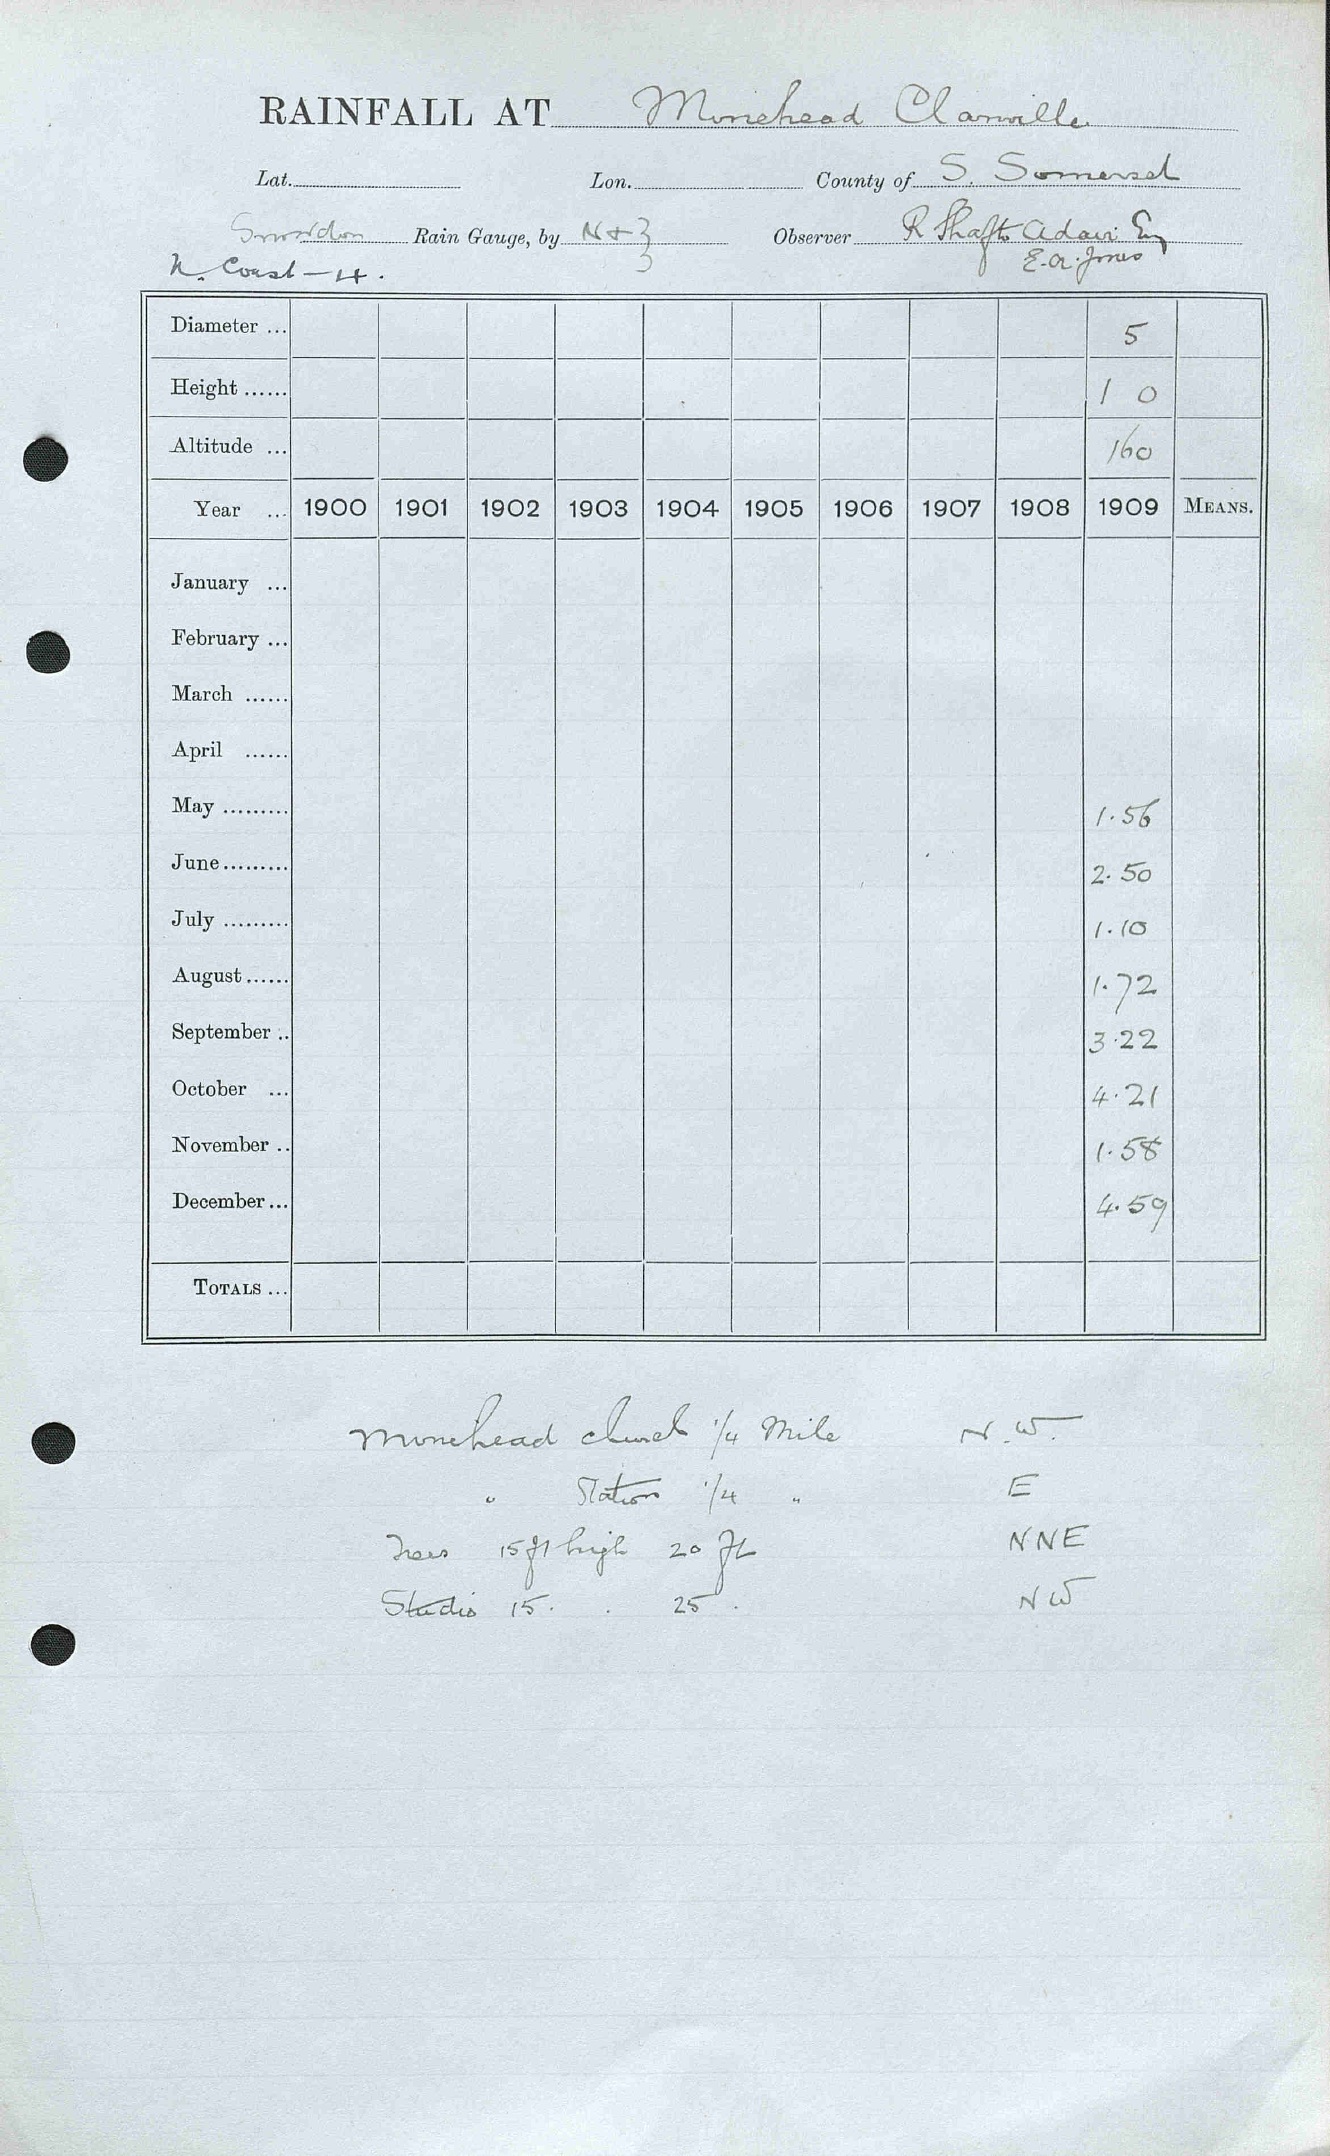 RAINFALL AT Minehead Clanville
Lat. Lon. County of S. Somerset
Snowdon Rain Gauge, by N & Z Observer R Shafto Adair Esq
N. Coast - 4. E. A. Jones
Diameter ... 5
Height ...... 1 0
Altitude ... 160
Year ... 1900 1901 1902 1903 1904 1905 1906 1907 1908 1909 MEANS.
January ...
February ...
March ......
April ......
May ......... 1.56
June ......... 2.50
July ......... 1.10
August ...... 1.72
September .. 3.22
October ... 4.21
November .. 1.58
December ... 4.59
TOTALS ...
Minehead church 1/4 Mile N.W.
" Station 1/4 " E
Trees 15 ft high 20 ft NNE
Studio 15 . . 25 . NW